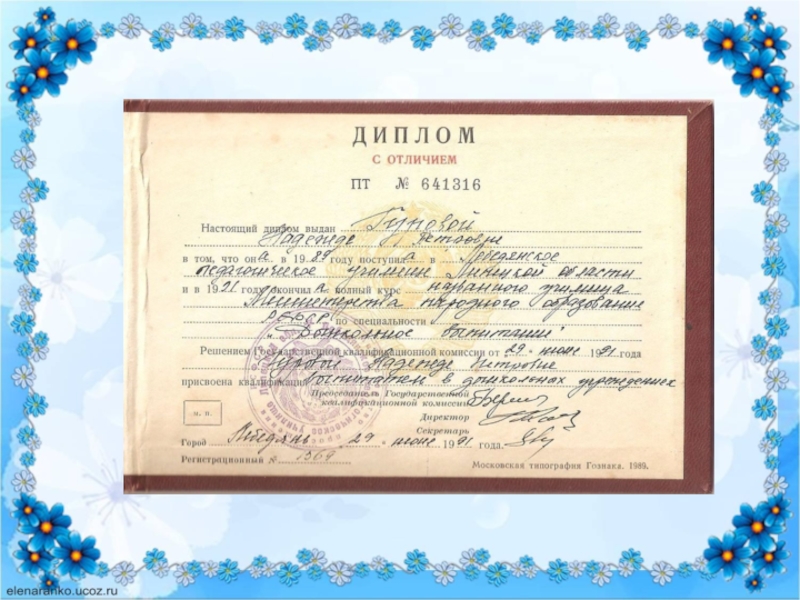 ДИПЛОМ
С ОТЛИЧИЕМ
ПТ № 641316
Настоящий диплом выдан
Надежде Петровне
в том, что она в 1989 году поступила в Лебедянское
педагогическое училище Липецкой области
и в 1991 году окончила полный курс названного училища
Министерства народного образования
РСФСР по специальности
"Дошкольное воспитание"
Решением Государственной квалификационной комиссии от 29 июня 1991 года
Надежде Петровне
присвоена квалификация воспитатель в дошкольных учреждениях
Председатель Государственной
квалификационной комиссии
Директор
Секретарь
м. п.
Город Лебедянь 29 июня 1991 года.
Регистрационный № 1369
Московская типография Гознака. 1989.
elenaranko.ucoz.ru